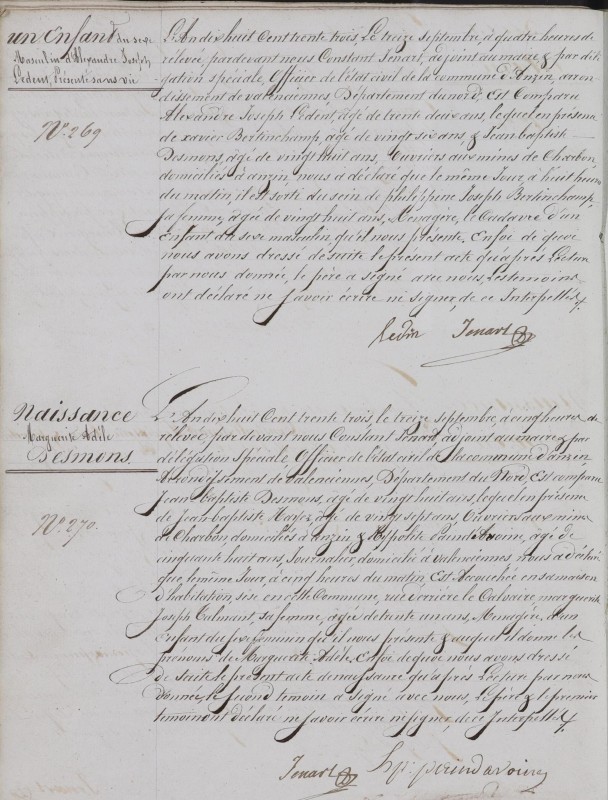 un Enfant du sexe
Masculin d'Alexandre Joseph
Ledent, Présenté sans vie
N.° 269
L'An dix huit Cent trente trois, Le treize septembre, à quatre heures de
relevée, pardevant nous Constant Jenart, adjoint au maire & par dél-
égation spéciale, Officer de l'état civil de la commune d'Anzin, arron
dissement de valenciennes, Département du nord, Est Comparu
Alexandre Joseph Ledent, agé de trente deux ans, lequel en présence
de xavier Bertinchamp, agé de vingt six ans, & Jean baptiste
Desmons, agé de vingt huit ans, ouvriers aux mines de Charbon,
domiciliés à anzin nous a déclaré que le même Jour, à huit heures
du matin, il est sorti du sein de philippine Joseph Bertinchamp,
sa femme, agée de vingt huit ans, Menagere, le Cadavre d'un
Enfant du sexe masculin, qu'il nous présente. En foi de quoi
nous avons dressé de suite le présent acte qu'après Lecture
par nous donnée, le père a signé avec nous, Les temoins
ont déclaré ne savoir écrire ni signer, de ce Interpellés.
Jenart
Naissance
Marguerite Adèle
Desmons.
N.° 270.
L'An dix huit Cent trente trois, le treize septembre, à cinq heures de
relevée, par devant nous Constant Jenart, adjoint au maire & par
délégation spéciale Officier de l'état civil de la commune d'anzin
Arrondissement de valenciennes, Département du Nord, Est comparu
Jean baptiste Desmons, agé de vingt huit ans, lequel en présence
de Jean baptiste agé de vingt sept ans, Ouvriers aux mines
de Charbon domiciliés à anzin & hyppolite agé de
cinquante huit ans, Journalier, domicilié à valenciennes nous a déclaré
que, le même Jour, à cinq heures du matin Est Accouchée en sa maison
d'habitation, sise en cette Commune, rue derrière le Calvaire marguerite
Joseph Calmant, sa femme, agée de trente un ans, Menagère. d'un
Enfant du sexe feminin qu'il nous présente & auquel il donne les
prénoms de Marguerite Adèle. En foi de quoi nous avons dressé
de suite le présent acte de naissance qu'après Lecture par nous
Donnée, le second temoin a signé avec nous, Le père & le premier
temoin ont déclaré ne savoir écrire ni signer, de ce Interpellés.
Jenart